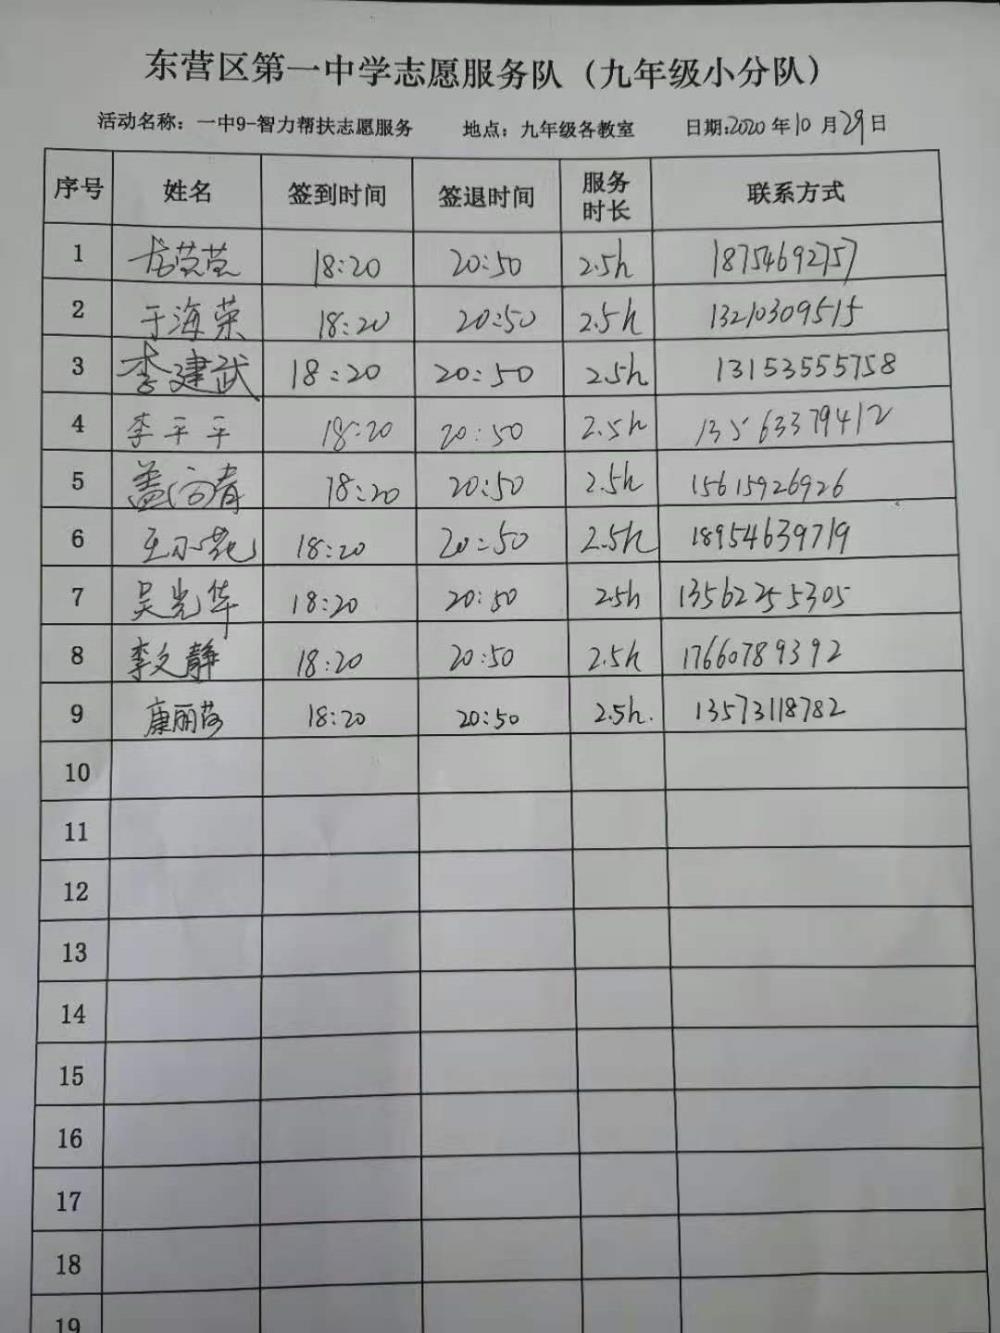 东营区第一中学志愿服务队（九年级小分队）
活动名称：一中9-智力帮扶志愿服务 地点：九年级各教室 日期:2020年10月29日
序号 姓名 签到时间 签退时间 服务时长 联系方式
1 莹莹 18:20 20:50 2.5h 18754692757
2 于海荣 18:20 20:50 2.5h 13210309515
3 李建武 18:20 20:50 2.5h 13153555758
4 李平平 18:20 20:50 2.5h 13563379412
5 盖 青 18:20 20:50 2.5h 15615926926
6 王小花 18:20 20:50 2.5h 18954639719
7 吴光华 18:20 20:50 2.5h 13562255305
8 李文静 18:20 20:50 2.5h 17660789392
9 康丽 18:20 20:50 2.5h. 13573118782
10
11
12
13
14
15
16
17
18
19